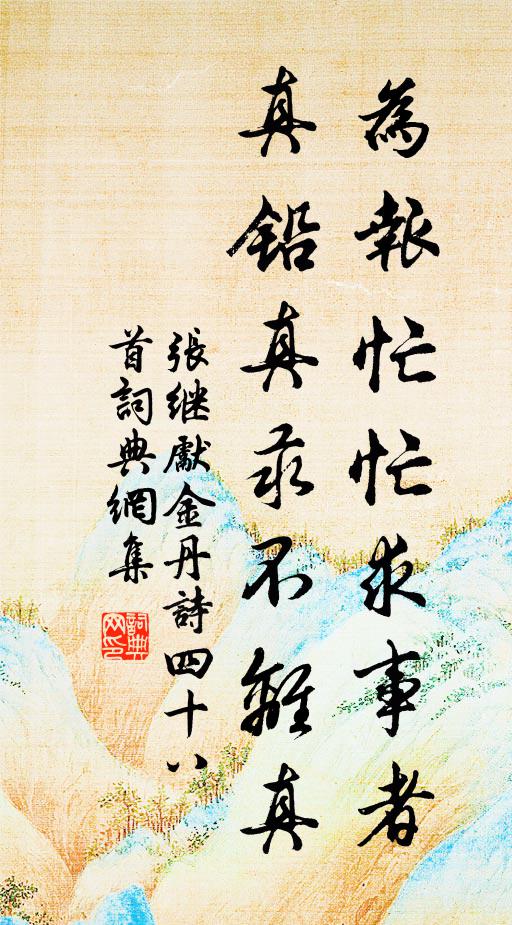 為報忙忙求事者
真鉛真汞不離真
張继獻金丹詩四十八
首詞典網集
詞典
网印